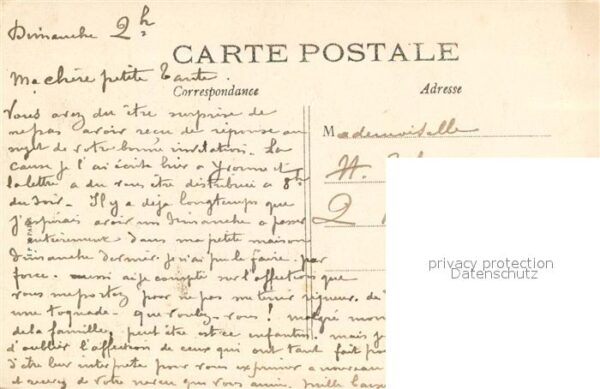 Dimanche 2h
CARTE POSTALE
Ma chère petite Tante.
Correspondance
Adresse
Vous avez du être surprise de
ne pas avoir reçu de réponse au
sujet de votre bonne invitation. La
cause je l'ai écrite hier a Yvonne et
la lettre a du vous être distribuée a 8h
du soir. Il y a déja longtemps que
j'espérais avoir un Dimanche a passer
entièrement dans ma petite maison
Dimanche dernier je n'ai pu le faire. par
force. aussi ai je compté sur l'affection que
vous me portez pour ne pas me tenir rigueur. de
une toquade. que voulez-vous! malgré mon
de la famille, peut être est ce enfantin. mais je
d'oublier l'affection de ceux qui ont tant fait po
d'être leur interprète pour vous exprimer a nouveau
et recevez de votre neveu qui vous aime. mille baise
Mademoiselle
H.
2
privacy protection
Datenschutz